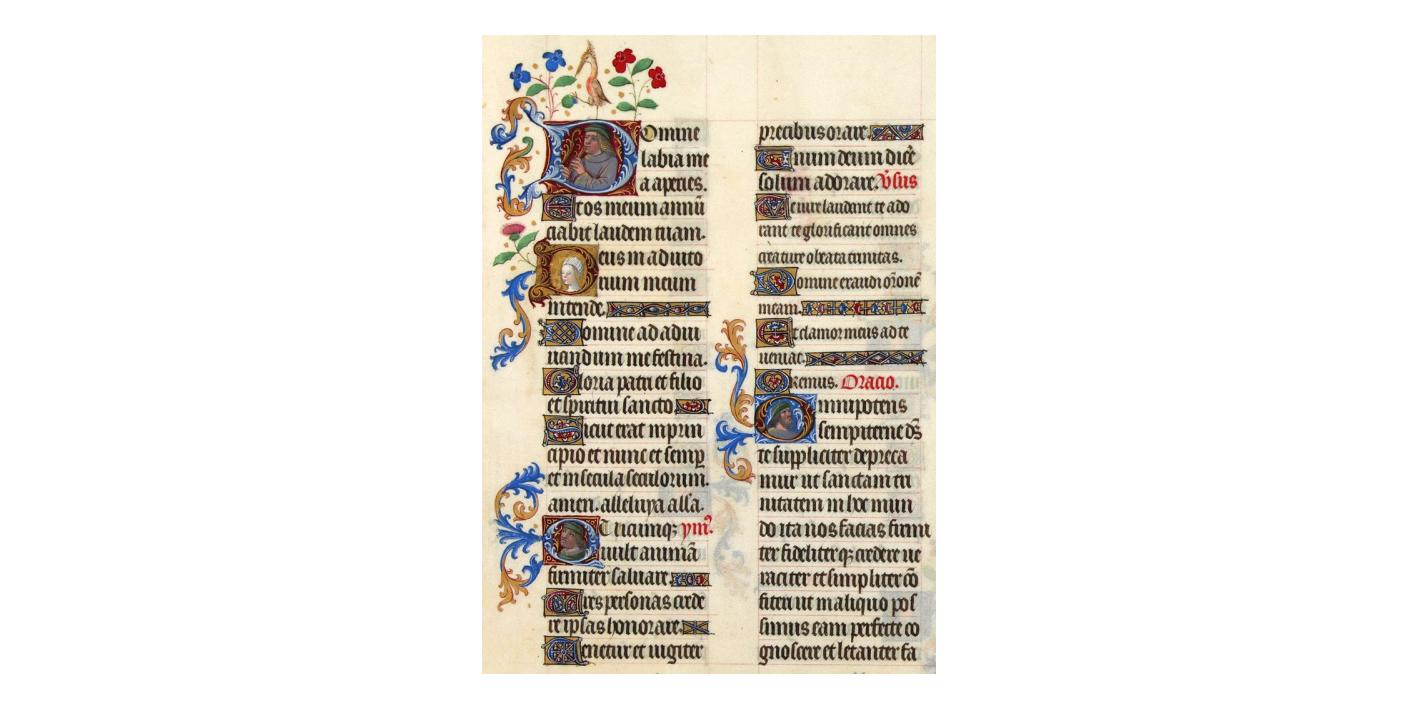 Domine
labia me
a aperies.
Et os meum annū
ciabit laudem tuam.
Deus in adiuto
rium meum
intende.
Domine ad adiu
uandum me festina.
Gloria patri et filio
et spiritui sancto
Sicut erat in prin
cipio et nunc et semp
et in secula seculorum.
amen. alleluya alla.
Quicumqz ymꝰ.
uult animā
firmiter saluare
Tres personas crede
re ipsas honorare.
Tenetur et iugiter
precibus orare.
Unum deum dicē
solum adorare. V̓sus
Te iure laudant te ado
rant te glorificant omnes
creature o beata trinitas.
Domine exaudi or̄onē
meam.
Et clamor meus ad te
ueniat.
Oremus. Oracio.
Omnipotens
sempiterne ds̄
te suppliciter depreca
mur ut sanctam tri
nitatem in hoc mun
do ita nos facias firmi
ter fideliterqz credere ue
raciter et simpliciter cō
fiteri ut in aliquo pos
simus eam perfecte co
gnoscere et letanter fa